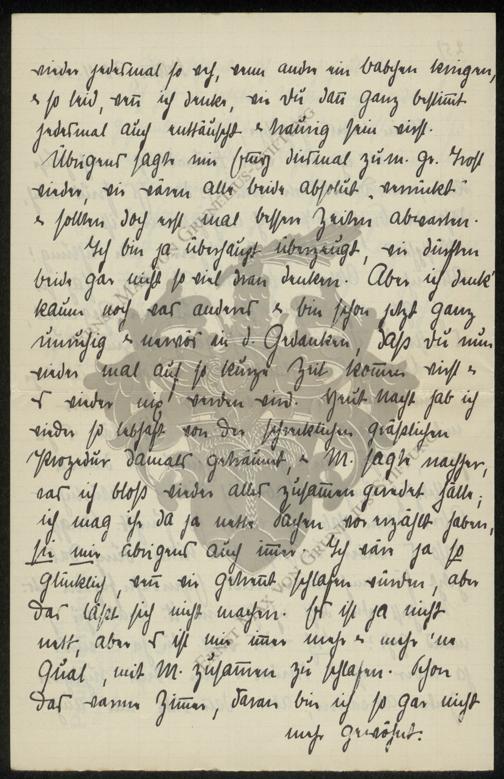 wieder jedesmal so weh, wenn andre ein Babchen kriegen,
& so leid, weñ ich denke, wie Du dañ ganz bestim̄t
jedesmal auch enttäuscht & traurig sein wirst.
Übrigens sagte mir diesmal zu m. gr. Trost
wieder, wir wären alle beide absolut „verrückt"
& sollten doch erst mal bessere Zeiten abwarten.
Ich bin ja überhaupt überzeugt, wir dürften
beide gar nicht so viel dran denken. Aber ich denk'
kaum noch was anderes & bin schon jetzt ganz
unruhig & nervös in d. Gedanken, daß Du nun
wieder mal auf so kurze Zeit kom̄en wirst &
es wieder nix werden wird. Heut Nacht hab ich
wieder so lebhaft von der schrecklichen gräßlichen
Prozedur damals geträumt, & M. sagte nachher,
was ich bloß wieder alles zusam̄en geredet hätte;
ich mag ihr da ja nette Sachen vorerzählt haben,
sie mir übrigens auch im̄er. Ich wär ja so
glücklich, weñ wir getrennt schlafen würden, aber
das läßt sich nicht machen. Es ist ja nicht
nett, aber es ist mir im̄er mehr & mehr 'ne
Qual, mit M. zusam̄en zu schlafen. Schon
das warme Zim̄er, daran bin ich so gar nicht
mehr gewöhnt.